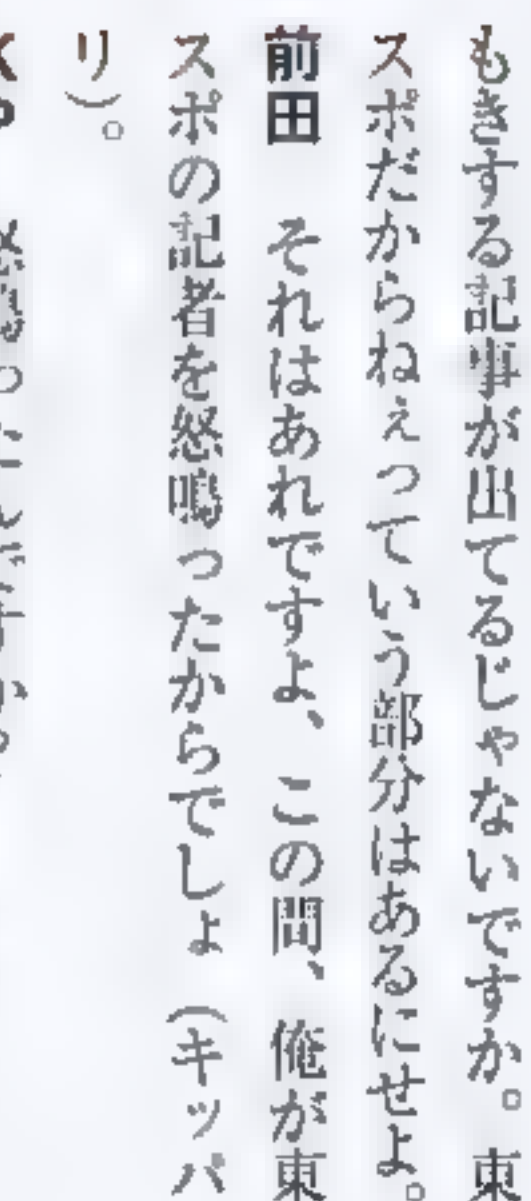 もきする記事が出てるじゃないですか。東
スポだからねぇっていう部分はあるにせよ。
前田　それはあれですよ、この間、俺が東
スポの記者を怒鳴ったからでしょ（キッパ
リ）。
怒鳴ったんですか。